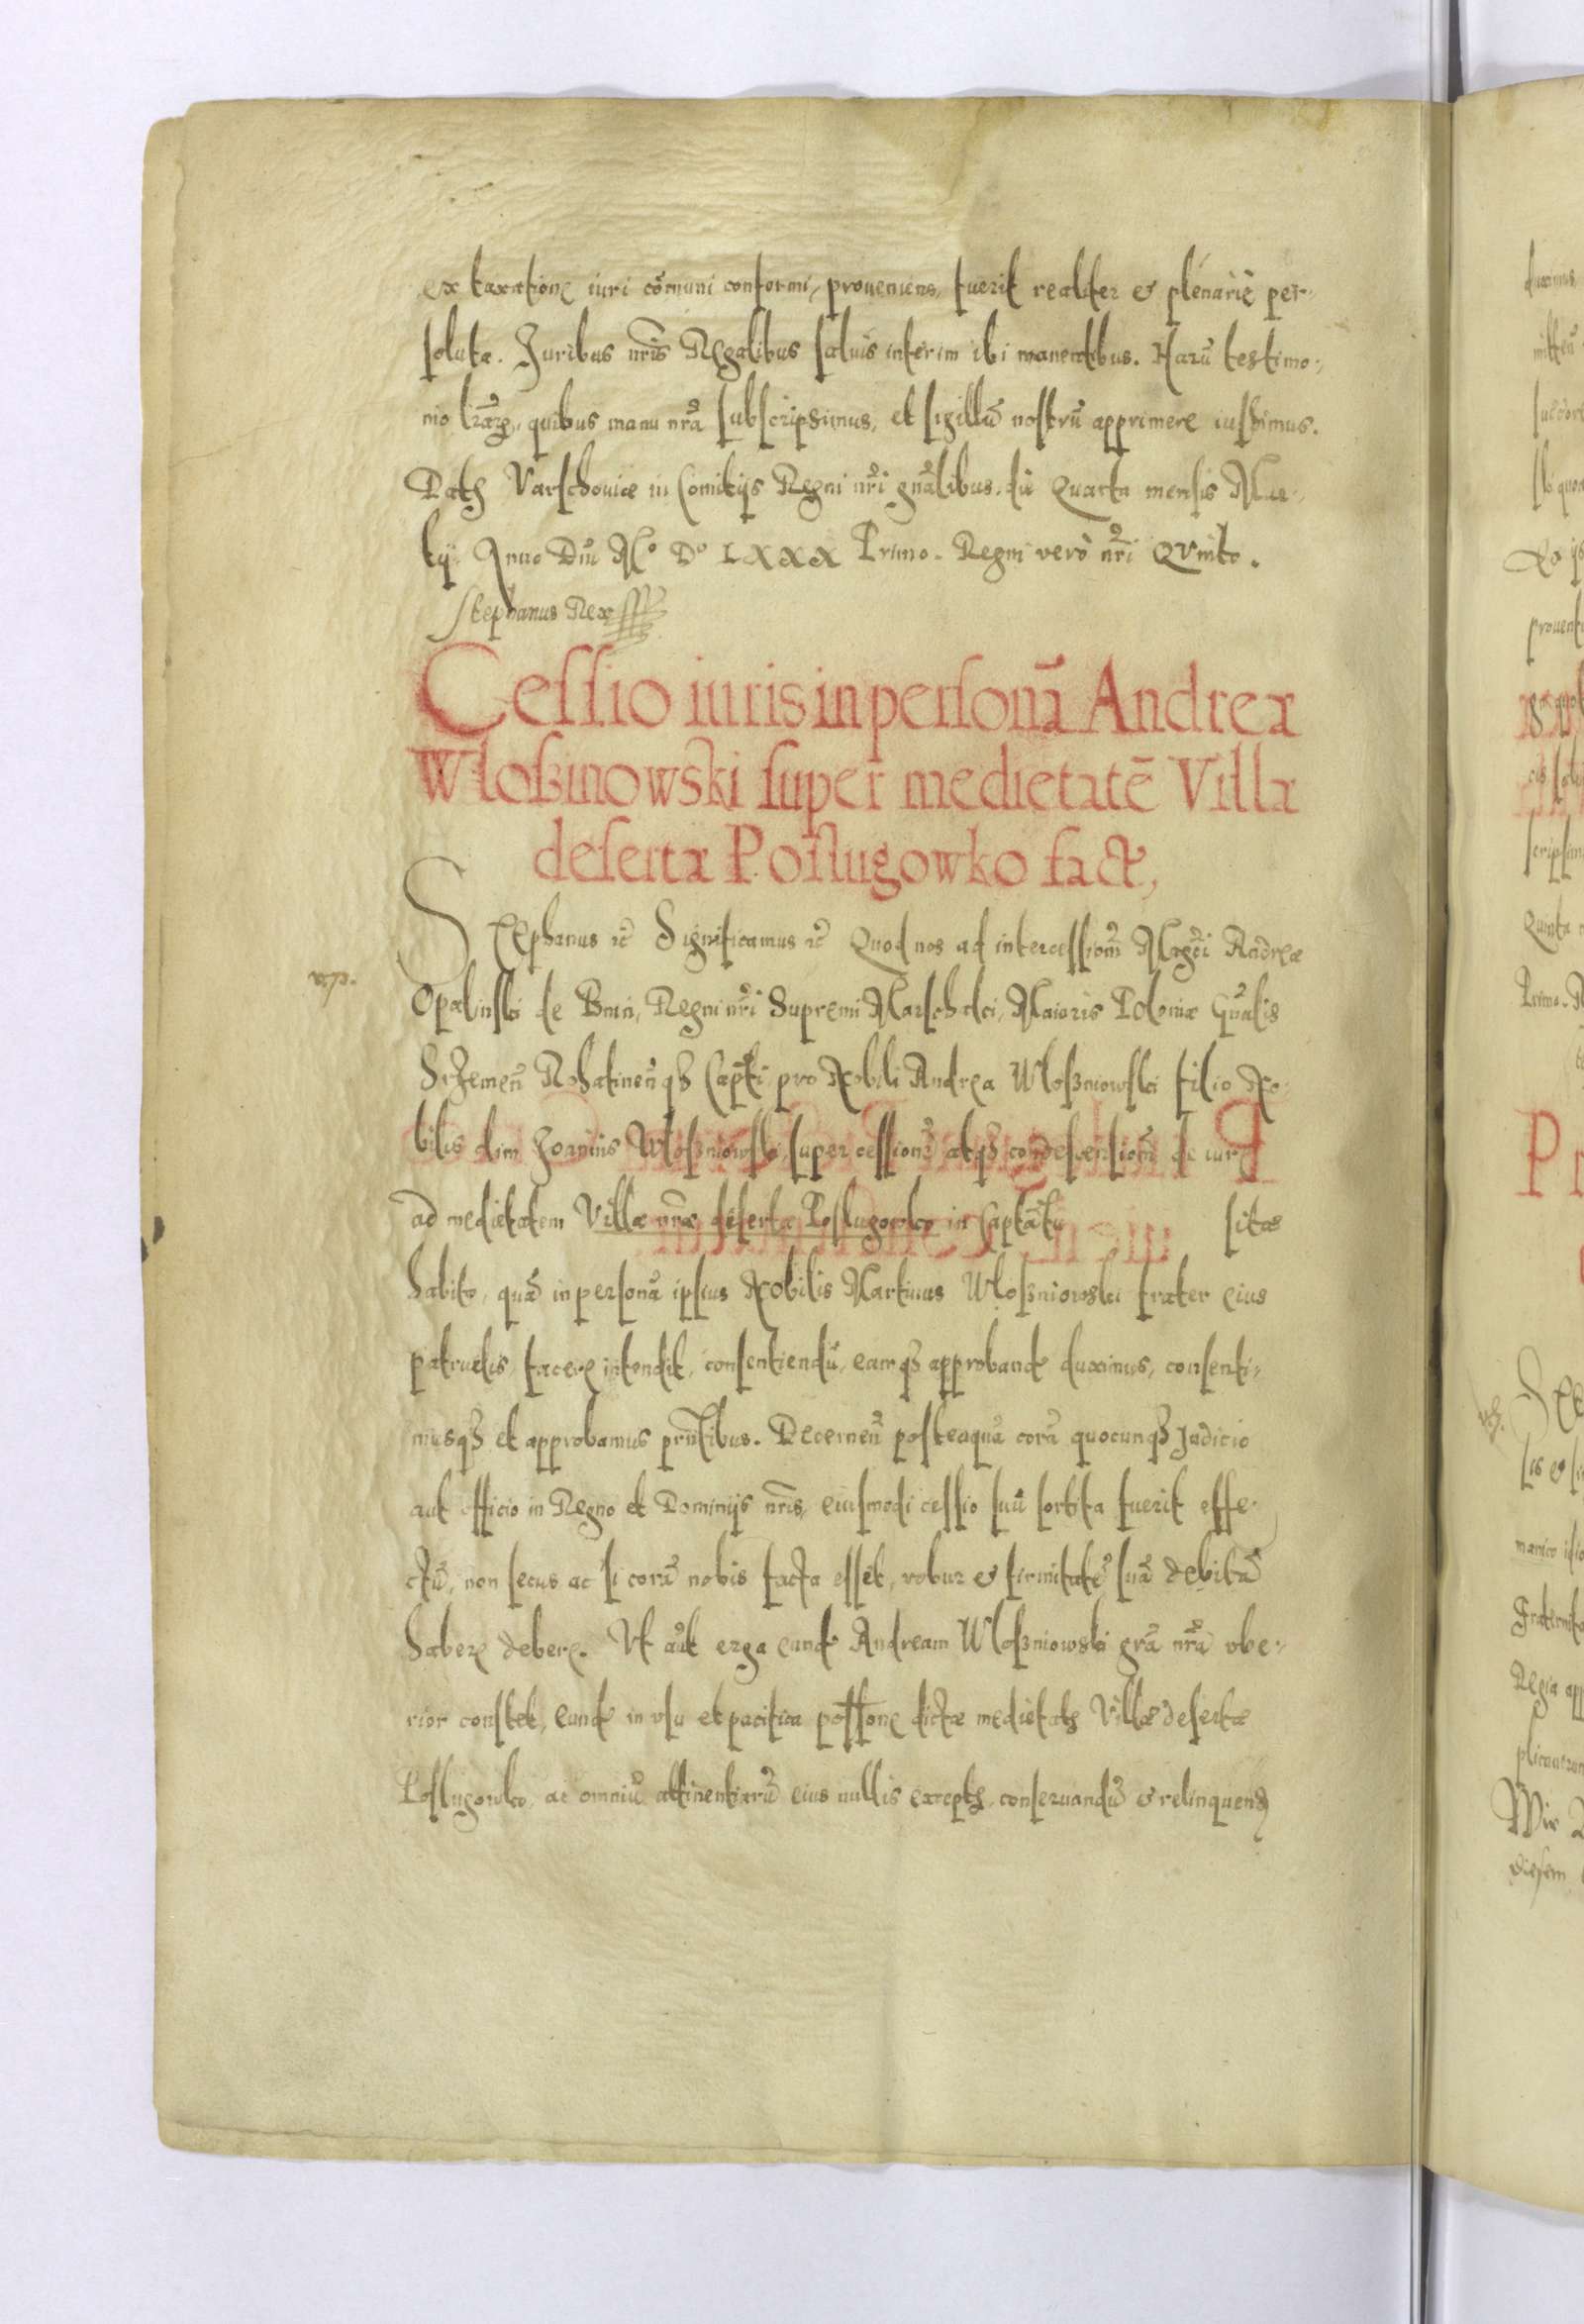 ex taxatione iuri cõmuni conformi, proueniens, fuerit realiter & plenariè per-
soluta. Iuribus nr̃is Regalibus saluis interim ibi manentibus. Harũ testimo-
nio lr̃arũ, quibus manu nr̃a subscripsimus, et sigillũ nostrũ apprimere iussimus.
Datȝ Varschouiæ in Comitijs Regni nr̃i gñalibus, die Quarta mensis Mar-
tij Anno Dñi Mº Dº LXXX Primo. Regni verò nr̃i Qvinto.
Stephanus Rex
Cessio iuris in personã Andreæ
Wloßinowski super medietatẽ Villæ
desertæ Poslugowko fact,
Stephanus ɾc̃ Significamus ɾc̃ Quod nos ad intercessionẽ Magci Andreæ
Opalinski de Bnin, Regni nr̃i Supremi Marschalci, Maioris Poloniæ Gñalis
Srzemeñ Rohatineñqȝ Capti, pro Nobili Andrea Wloßniowski filio No-
bilis olim Joannis Wloßniowski, super cessionẽ atqȝ condescensionẽ de iure
ad medietatem Villæ nr̃æ desertæ Poslugowko in Captãtu sitæ
habito, quã in personã ipsius Nobilis Martinus Wloßniowski frater eius
patruelis facere intendit, consentiendũ, eamqȝ approband duximus, consenti-
musqȝ et approbamus pr̃ntibus. Decerneñ posteaquã corã quocunqȝ Judicio
aut officio in Regno et Dominijs nr̃is, eiusmodi cessio suũ sortita fuerit effe-
ctũ, non secus ac si corã nobis facta esset, robur & firmitatẽ suã debitã
habere debere. Vt aũt erga eund Andream Wloßniowski gr̃a nr̃a vbe-
rior constet, eund in vsu et pacifica possione dictæ medietatȝ Villæ desertæ
Poslugowko, ac omniũ attinentiarũ eius nullis exceptȝ, conseruandũ & relinquend